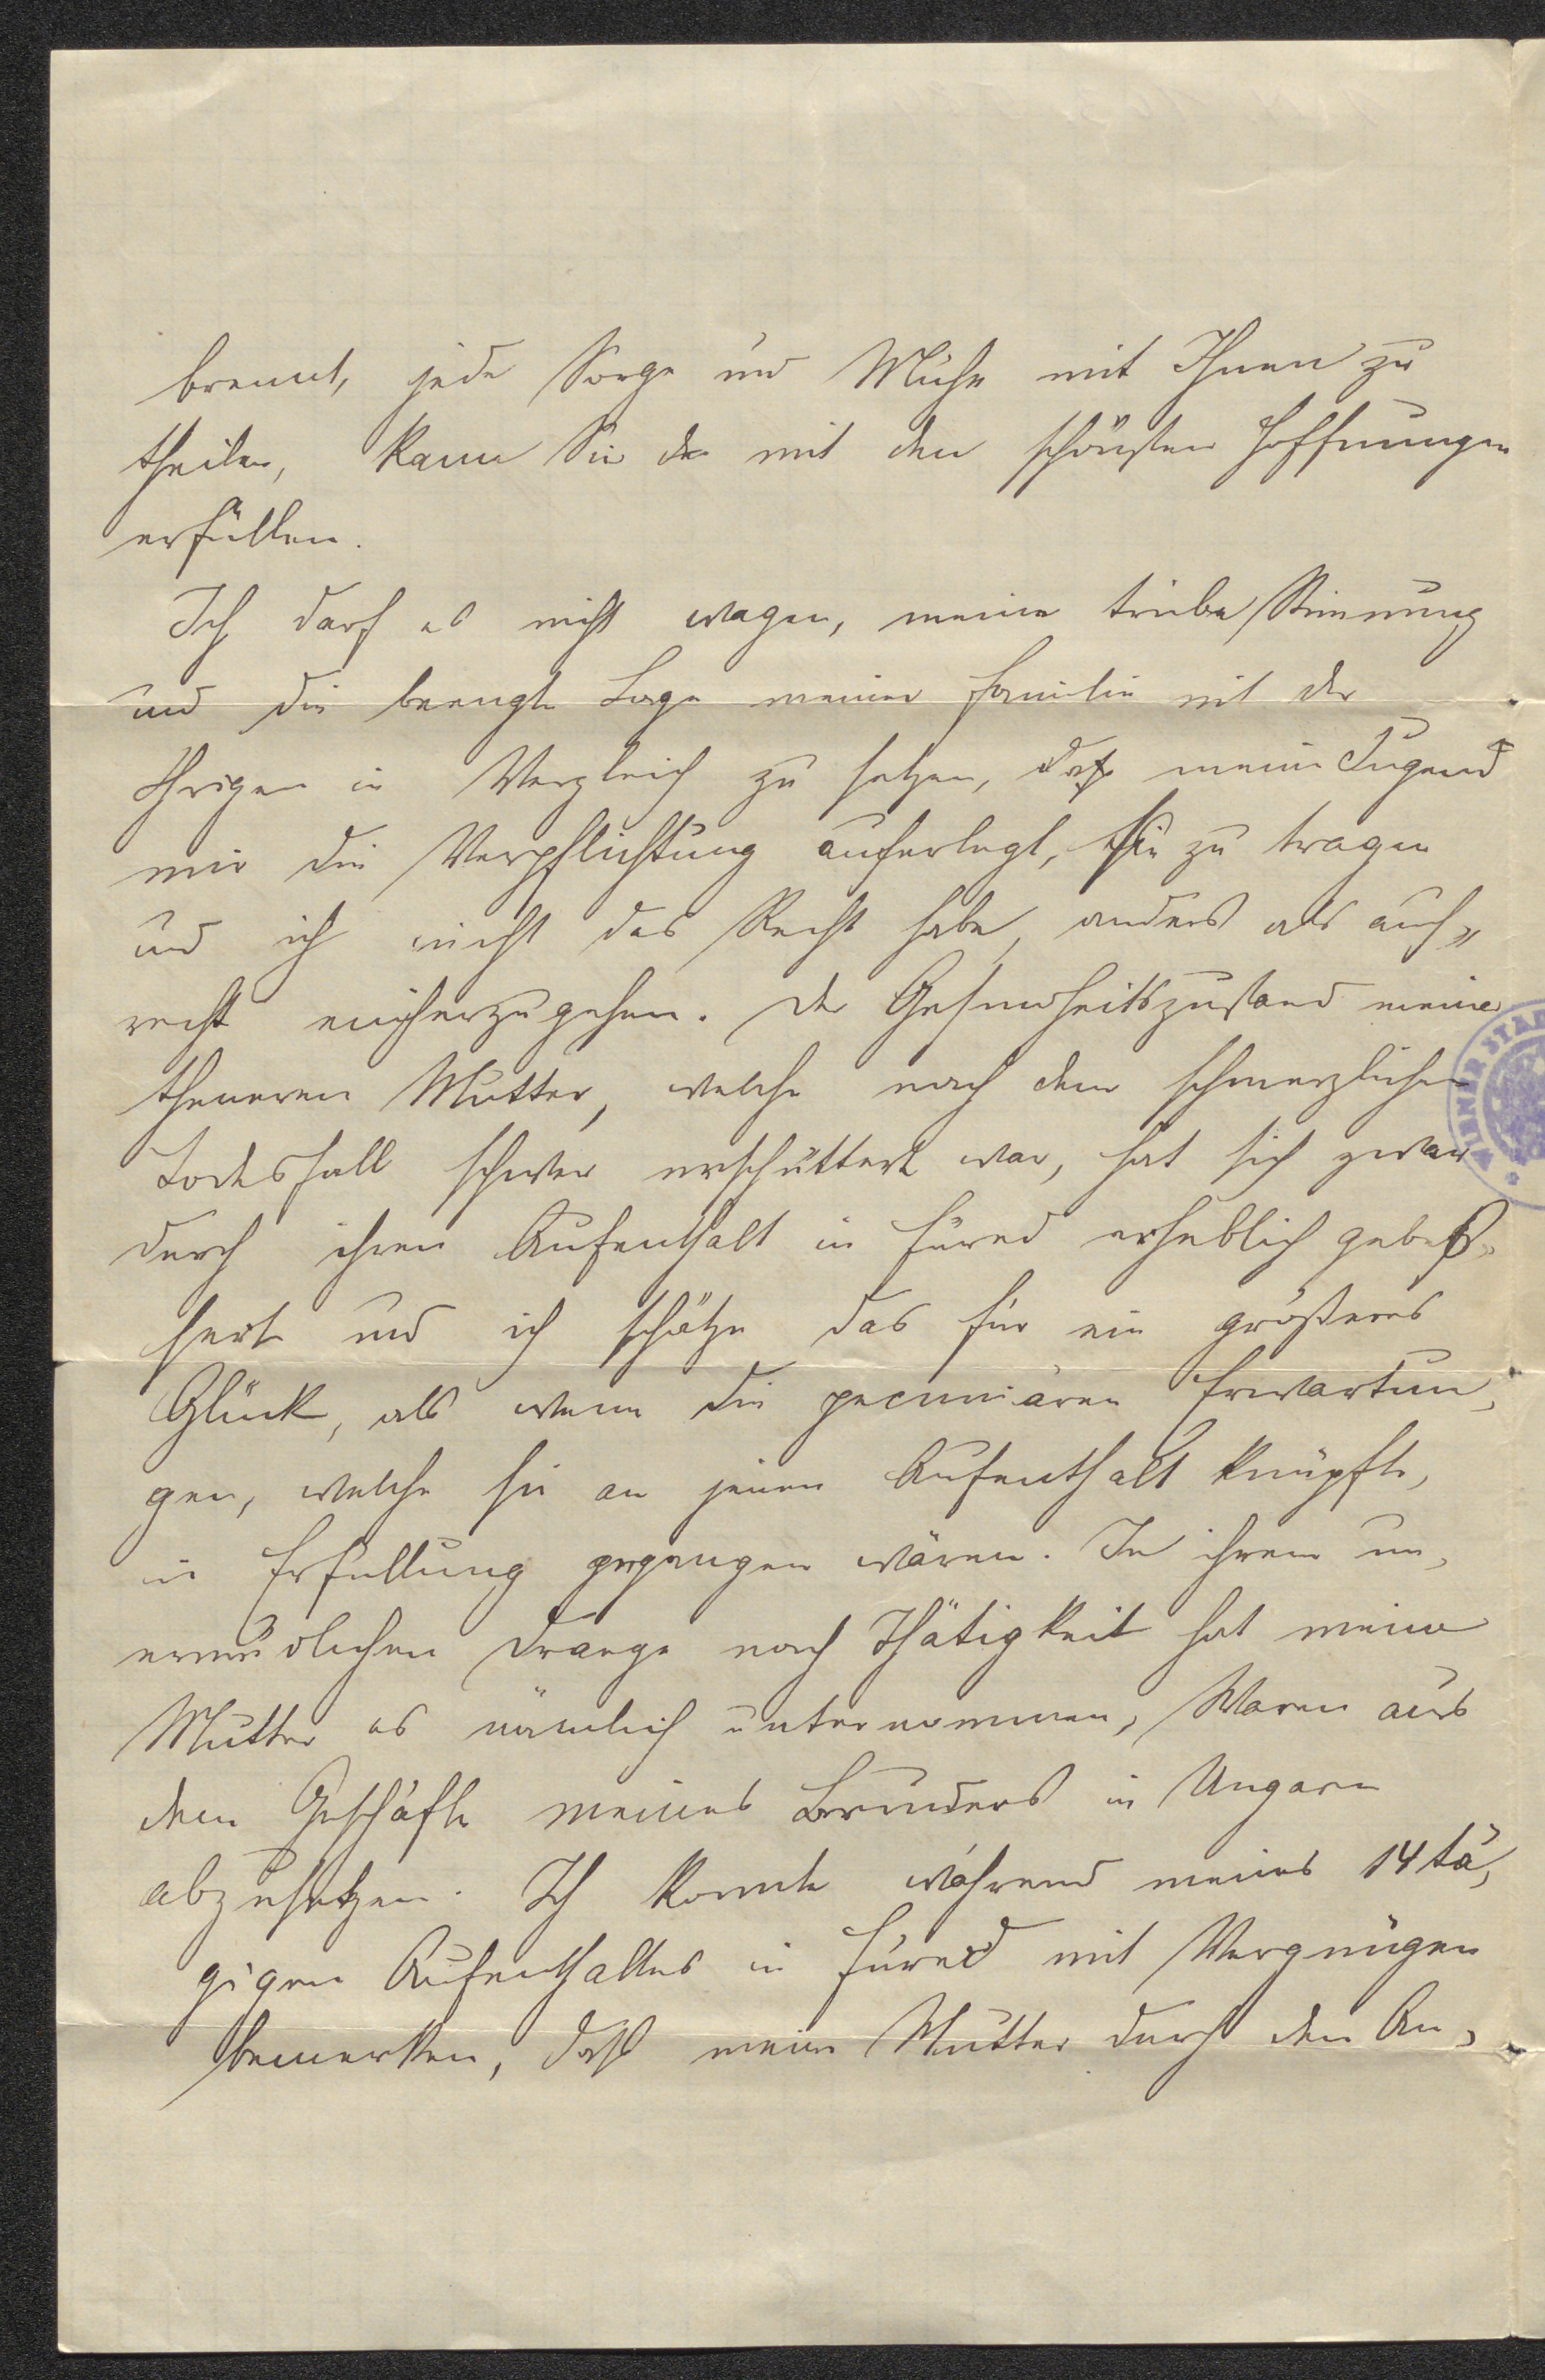 brennt, jede Sorge und Mühe mit Ihnen zu
theilen, kann Sie mit den schönsten Hoffnungen
erfüllen.
Ich darf es nicht wagen, meine trübe Stimmung
und die beengte Lage meiner Familie mit der
Ihrigen in Vergleich zu setzen, da meine Jugend
mir die Verpflichtung auferlegt, sie zu tragen
und ich nicht das Recht habe, anders als auf„
recht einherzugehen. Der Gesundheitszustand meiner
theueren Mutter, welche nach dem schmerzlichen
Todesfall schwer erschüttert war, hat sich zwar
durch ihren Aufenthalt in Füred erheblich gebeß„
sert und ich schätze das für ein größeres
Glück, als wenn die pecuniären Erwartun„
gen, welche sie an jenen Aufenthalt knüpfte,
in Erfüllung gegangen wären. In ihrem un„
ermüdlichen Drange nach Thätigkeit hat meine
Mutter es nämlich unternommen, Waren aus
dem Geschäfte meines Bruders in Ungarn
abzusetzen. Ich konnte während meines 14 tä„
gigen Aufenthaltes in Füred mit Vergnügen
bemerken, daß meine Mutter durch den An„
WIENER STAD